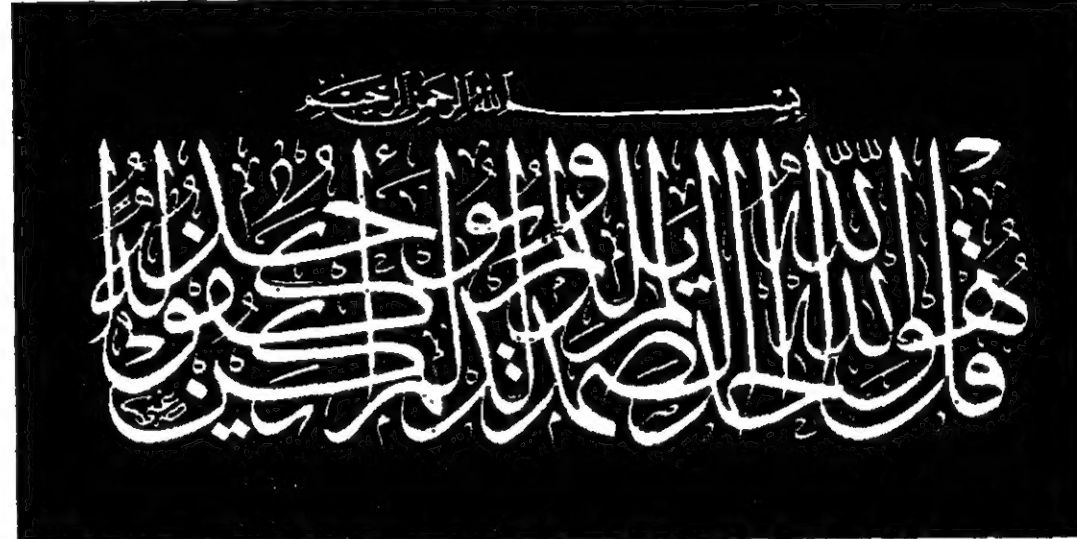 بِسْمِ اللَّهِ الرَّحْمَنِ الرَّحِيمِ
قُلْ هُوَ اللَّهُ أَحَدٌ اللَّهُ الصَّمَدُ لَمْ يَلِدْ وَلَمْ يُولَدْ وَلَمْ يَكُنْ لَهُ كُفُوًا أَحَدٌ